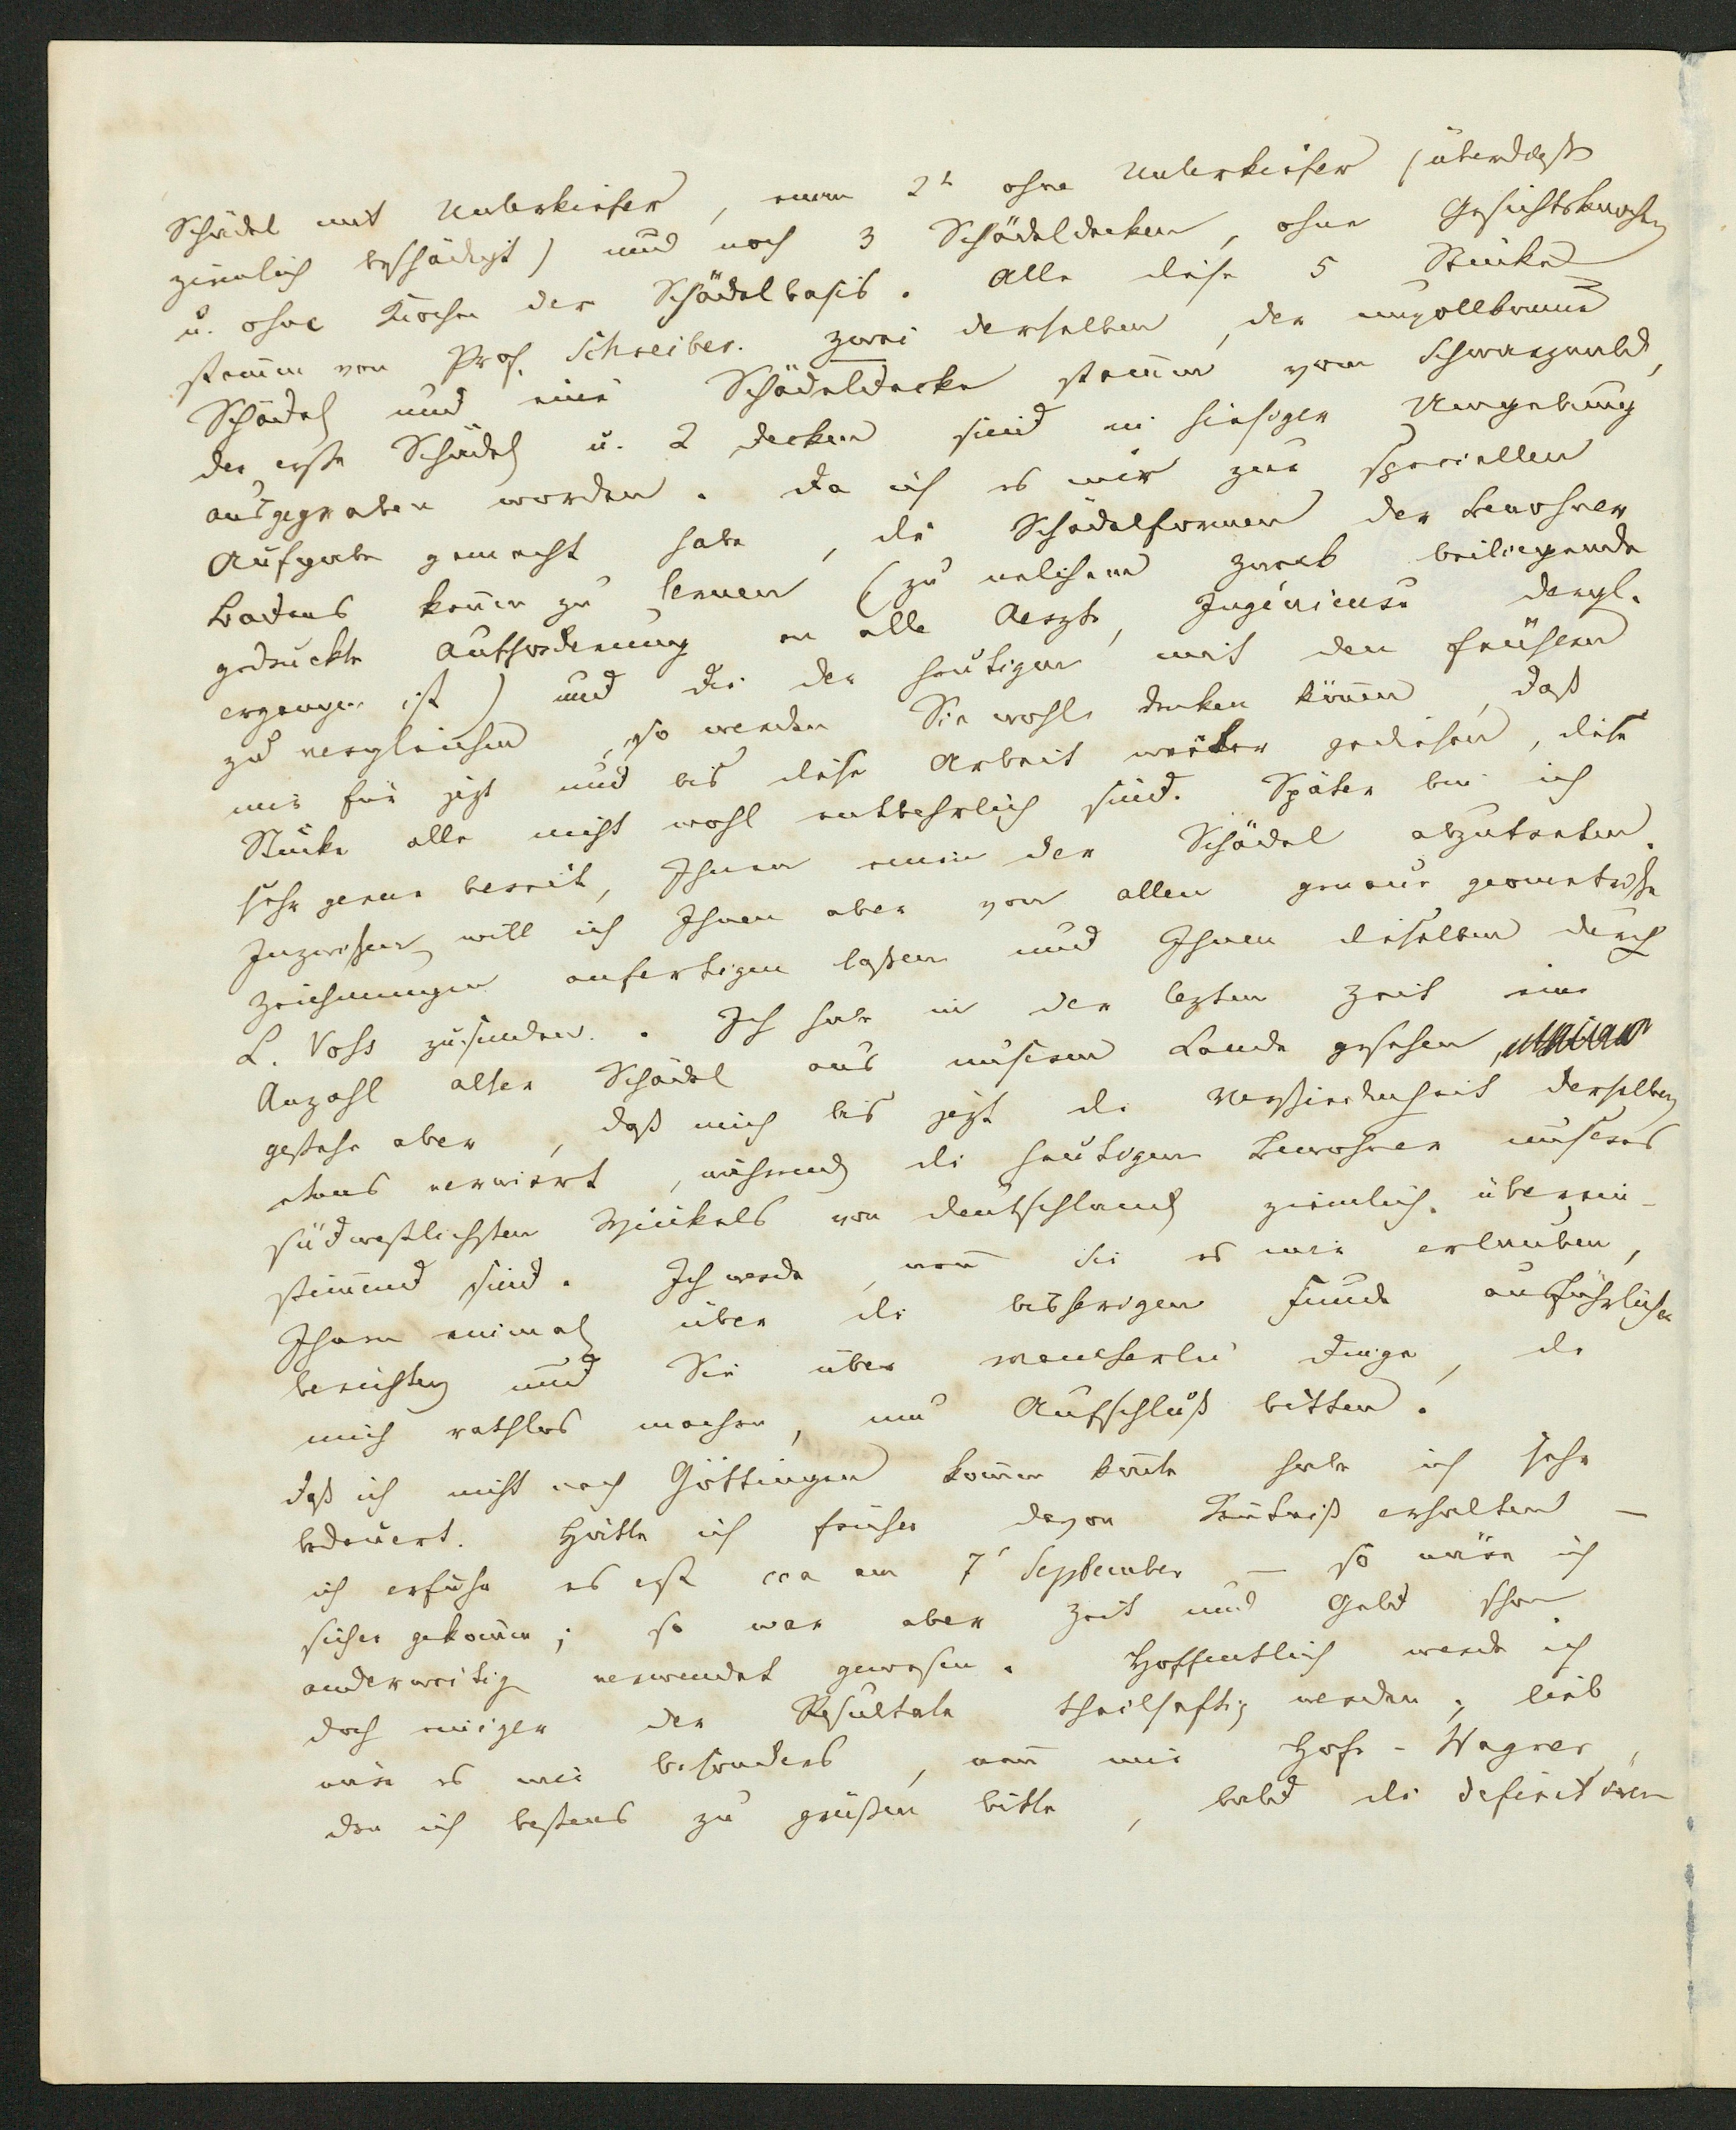 Schädel mit Unterkiefer, einen 2t ohne Unterkiefer (überdieß
ziemlich beschädigt) und noch 3 Schädeldecken, ohne Gesichtsknochen
u. ohne Knochen der Schädelbasis. Alle diese 5 Stücke
stam̅en von Prof. Schreiber. Zwei derselben, der unvollkom̅ene
Schädel und eine Schädeldecke stam̅en vom Schwarzwald,
der erste Schädel u. 2 Decken sind in hiesiger Umgebung
ausgegraben worden. Da ich es mir zur speciellen
Aufgabe gemacht habe, die Schädelformen der Bewohner
Badens ken̅en zu lernen (zu welchem Zweck beiliegende
gedruckte Aufforderung an alle Aerzte, Ingenieure dergl.
ergangen ist) und die der heutigen mit den frühern
zu vergleichen, so werden Sie wohl denken kön̅en, daß
mir für jezt und bis diese Arbeit weiter gediehen, diese
Stücke alle nicht wohl entbehrlich sind. Später bin ich
sehr gerne bereit, Ihnen einen der Schädel abzutreten.
Inzwischen will ich Ihnen aber von allen genaue geometrische
Zeichnungen anfertigen laßen und Ihnen dieselben durch
L. Voss zusenden. Ich habe in der lezten Zeit eine
Anzahl alter Schädel aus unserem Lande gesehen,
gestehe aber, daß mich bis jezt die Verschiedenheit derselben
etwas verwirrt, während die heutigen Bewohner unseres
südwestlichsten Winkels von Deutschland ziemlich überein-
stim̅end sind. Ich werde, wen̅ Sie es mir erlauben,
Ihnen einmal über die bisherigen Funde ausführlicher
berichten und Sie über mancherlei Dinge, die
mich rathlos machen, um Aufschluß bitten.
Daß ich nicht nach Göttingen kom̅en kon̅te habe ich sehr
bedauert. Hätte ich früher davon Ken̅tniß erhalten –
ich erfuhr es erst cca am 7t September – so wäre ich
sicher gekom̅en; so war aber Zeit und Geld schon
anderweitig verwendet gewesen. Hoffentlich werde ich
doch einiger der Resultate theilhaftig werden; lieb
wäre es mir besonders, wen̅ mir Hofr. Wagner,
den ich bestens zu grüßen bitte, bald die definitiven